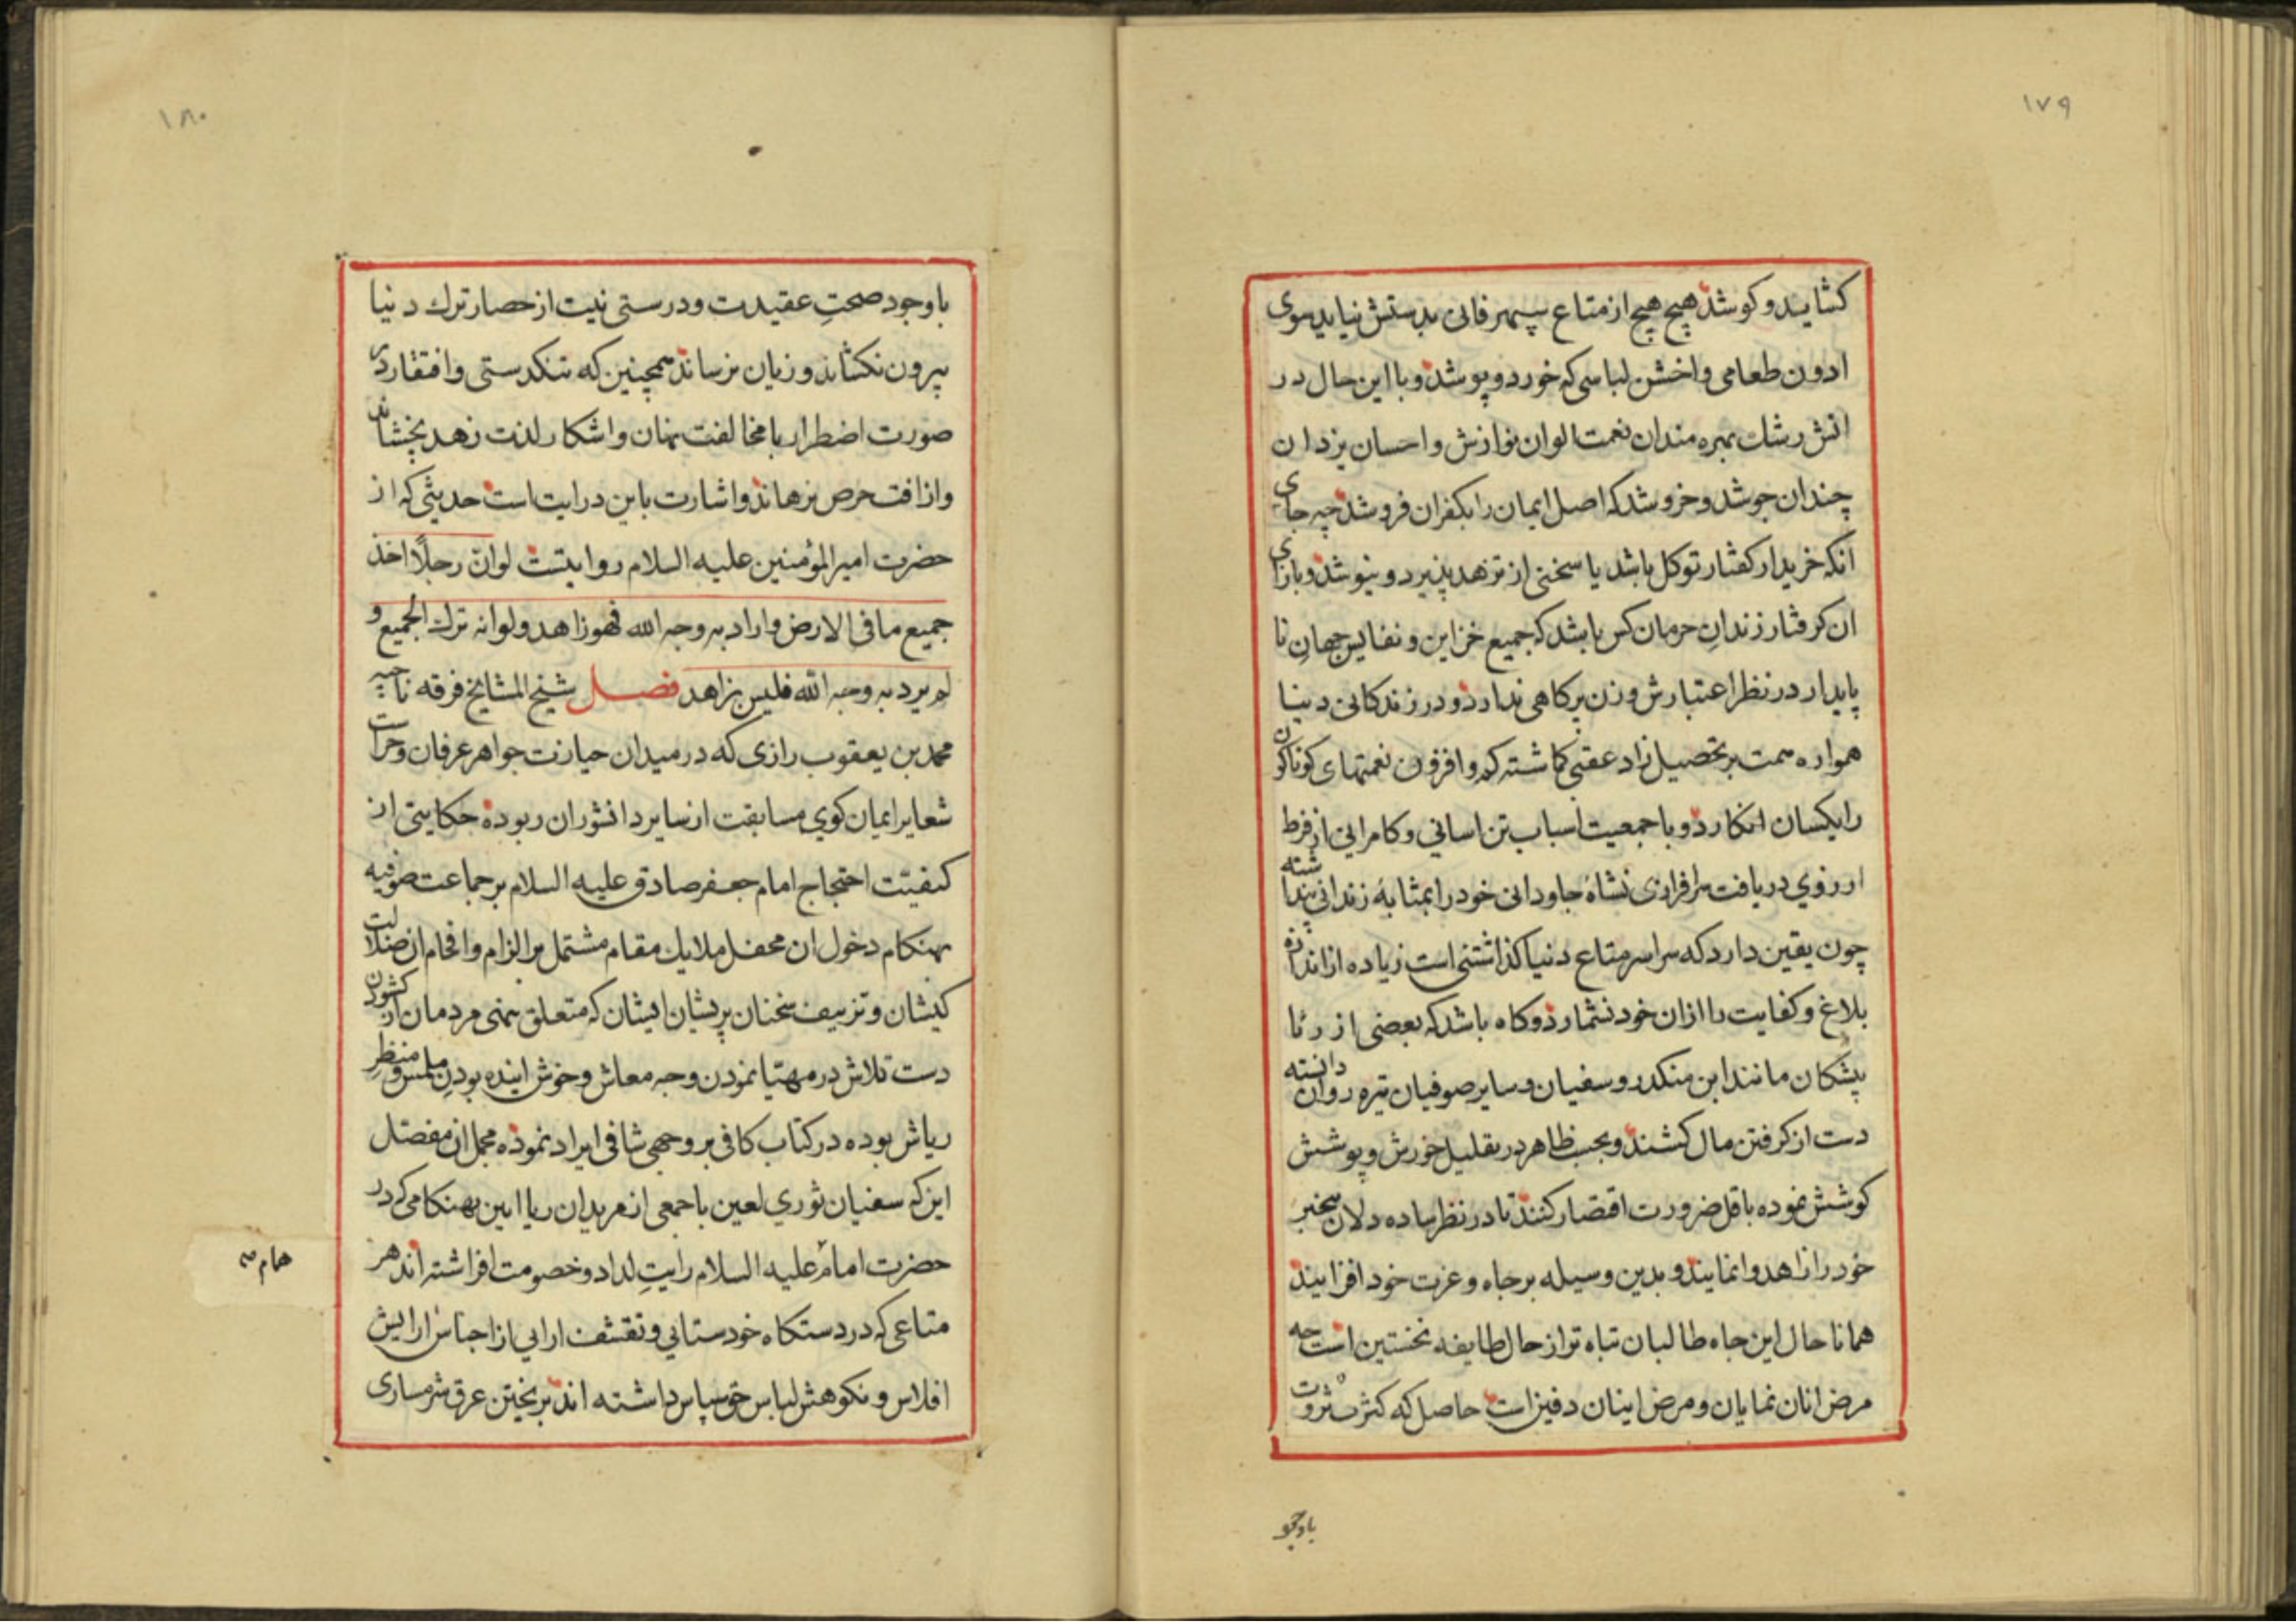 ١٧٩
کشاید و کوشد هیچ هیچ از متاع سپهر فانی بدستش نیاید سوی
ادون طعامی و اخشن لباسی که خورد و پوشد و با این حال در
اتش رشک بهره مندان نعمت الوان نوازش و احسان یزدان
چندان جوشد و خروشد که اصل ایمان را بکفران فروشد چه جای
انکه خریدار کفتار توکل باشد یا سخنی از تزهد پذیرد و نیوشد و بازای
ان کرفتار زندانِ حرمان کس باشد که جمیع خزاین و نفایس جهانِ نا
پایدار در نظر اعتبارش وزن پر کاهی ندارد و در زندکانی دنیا
همواره همت بر تحصیل زاد عقبی کماشته کم و افزون نعمتهای کوناکون
را یکسان انکارد و با جمعیت اسباب تن اسانی و کامرانی از فرط
ارزوی دریافت سرافرازی نشاهٔ جاودانی خود را بمثابهٔ زندانی پنداشته
چون یقین دارد که سراسر متاع دنیا کذاشتنی است زیاده از اندازه
بلاغ و کفایت را ازان خود نشمارد و کاه باشد که بعضی از رئا
پیشکان مانند ابن منکدر و سفیان و سایر صوفیان تیره روان دانسته
دست از کرفتن مال کشند و بحسب ظاهر در تقلیل خورش و پوشش
کوشش نموده باقل ضرورت اقتصار کنند تا در نظر ساده دلان بیخبر
خود را زاهد وانمایند و بدین وسیله بر جاه و عزت خود افزایند
همانا حال این جاه طالبان تباه تر از حال طایفه نخستین است چه
مرض انان نمایان و مرض اینان دفین است حاصل که کثرت ثروت
باوجو
١٨٠
باوجود صحتِ عقیدت و درستی نیت از حصار ترک دنیا
بیرون نکشاند و زیان نرساند همچنین که تنکدستی و افتقار در
صورت اضطرار با مخالفت نهان و اشکار لذت زهد نچشاند
و از افت حرص نرهاند و اشارت باین درایت است حدیثی که از
حضرت امیر المؤمنین علیه السلام روایتست لو انّ رجلًا اخذ
جمیع ما فی الارض و اراد به وجه الله فهو زاهد و لو انه ترک الجمیع و
لم یرد به وجه الله فلیس بزاهد فصل شیخ المشایخ فرقه ناجیه
محمد بن یعقوب رازی که در میدان حیازت جواهر عرفان و حراست
شعایر ایمان کوی مسابقت از سایر دانشوران ربوده حکایتی از
کیفیّت احتجاج امام جعفر صادق علیه السلام بر جماعت صوفیه
بهنکام دخول ان محفل ملایک مقام مشتمل بر الزام و افحام ان ضلالت
کیشان و تزییف سخنان پریشان ایشان که متعلق بنهی مردمان از کشودن
دست تلاش در مهیّا نمودن وجه معاش و خوش اینده بودنِ ملبس و منظرِ
ریاش بوده در کتاب کافی بر وجهی شافی ایراد نموده مجمل ان مفصّل
این که سفیان ثوری لعین با جمعی از مریدان ریا ایین بهنکامی که در
حضرت امام علیه السلام رایتِ لداد و خصومت افراشته اند هر
متاعی که در دستکاه خودستایی و تقشف ارایی از اجناس ارایش
افلاس و نکوهش لباس حق سپاس داشته اند بریختن عرق شرمساری
همام